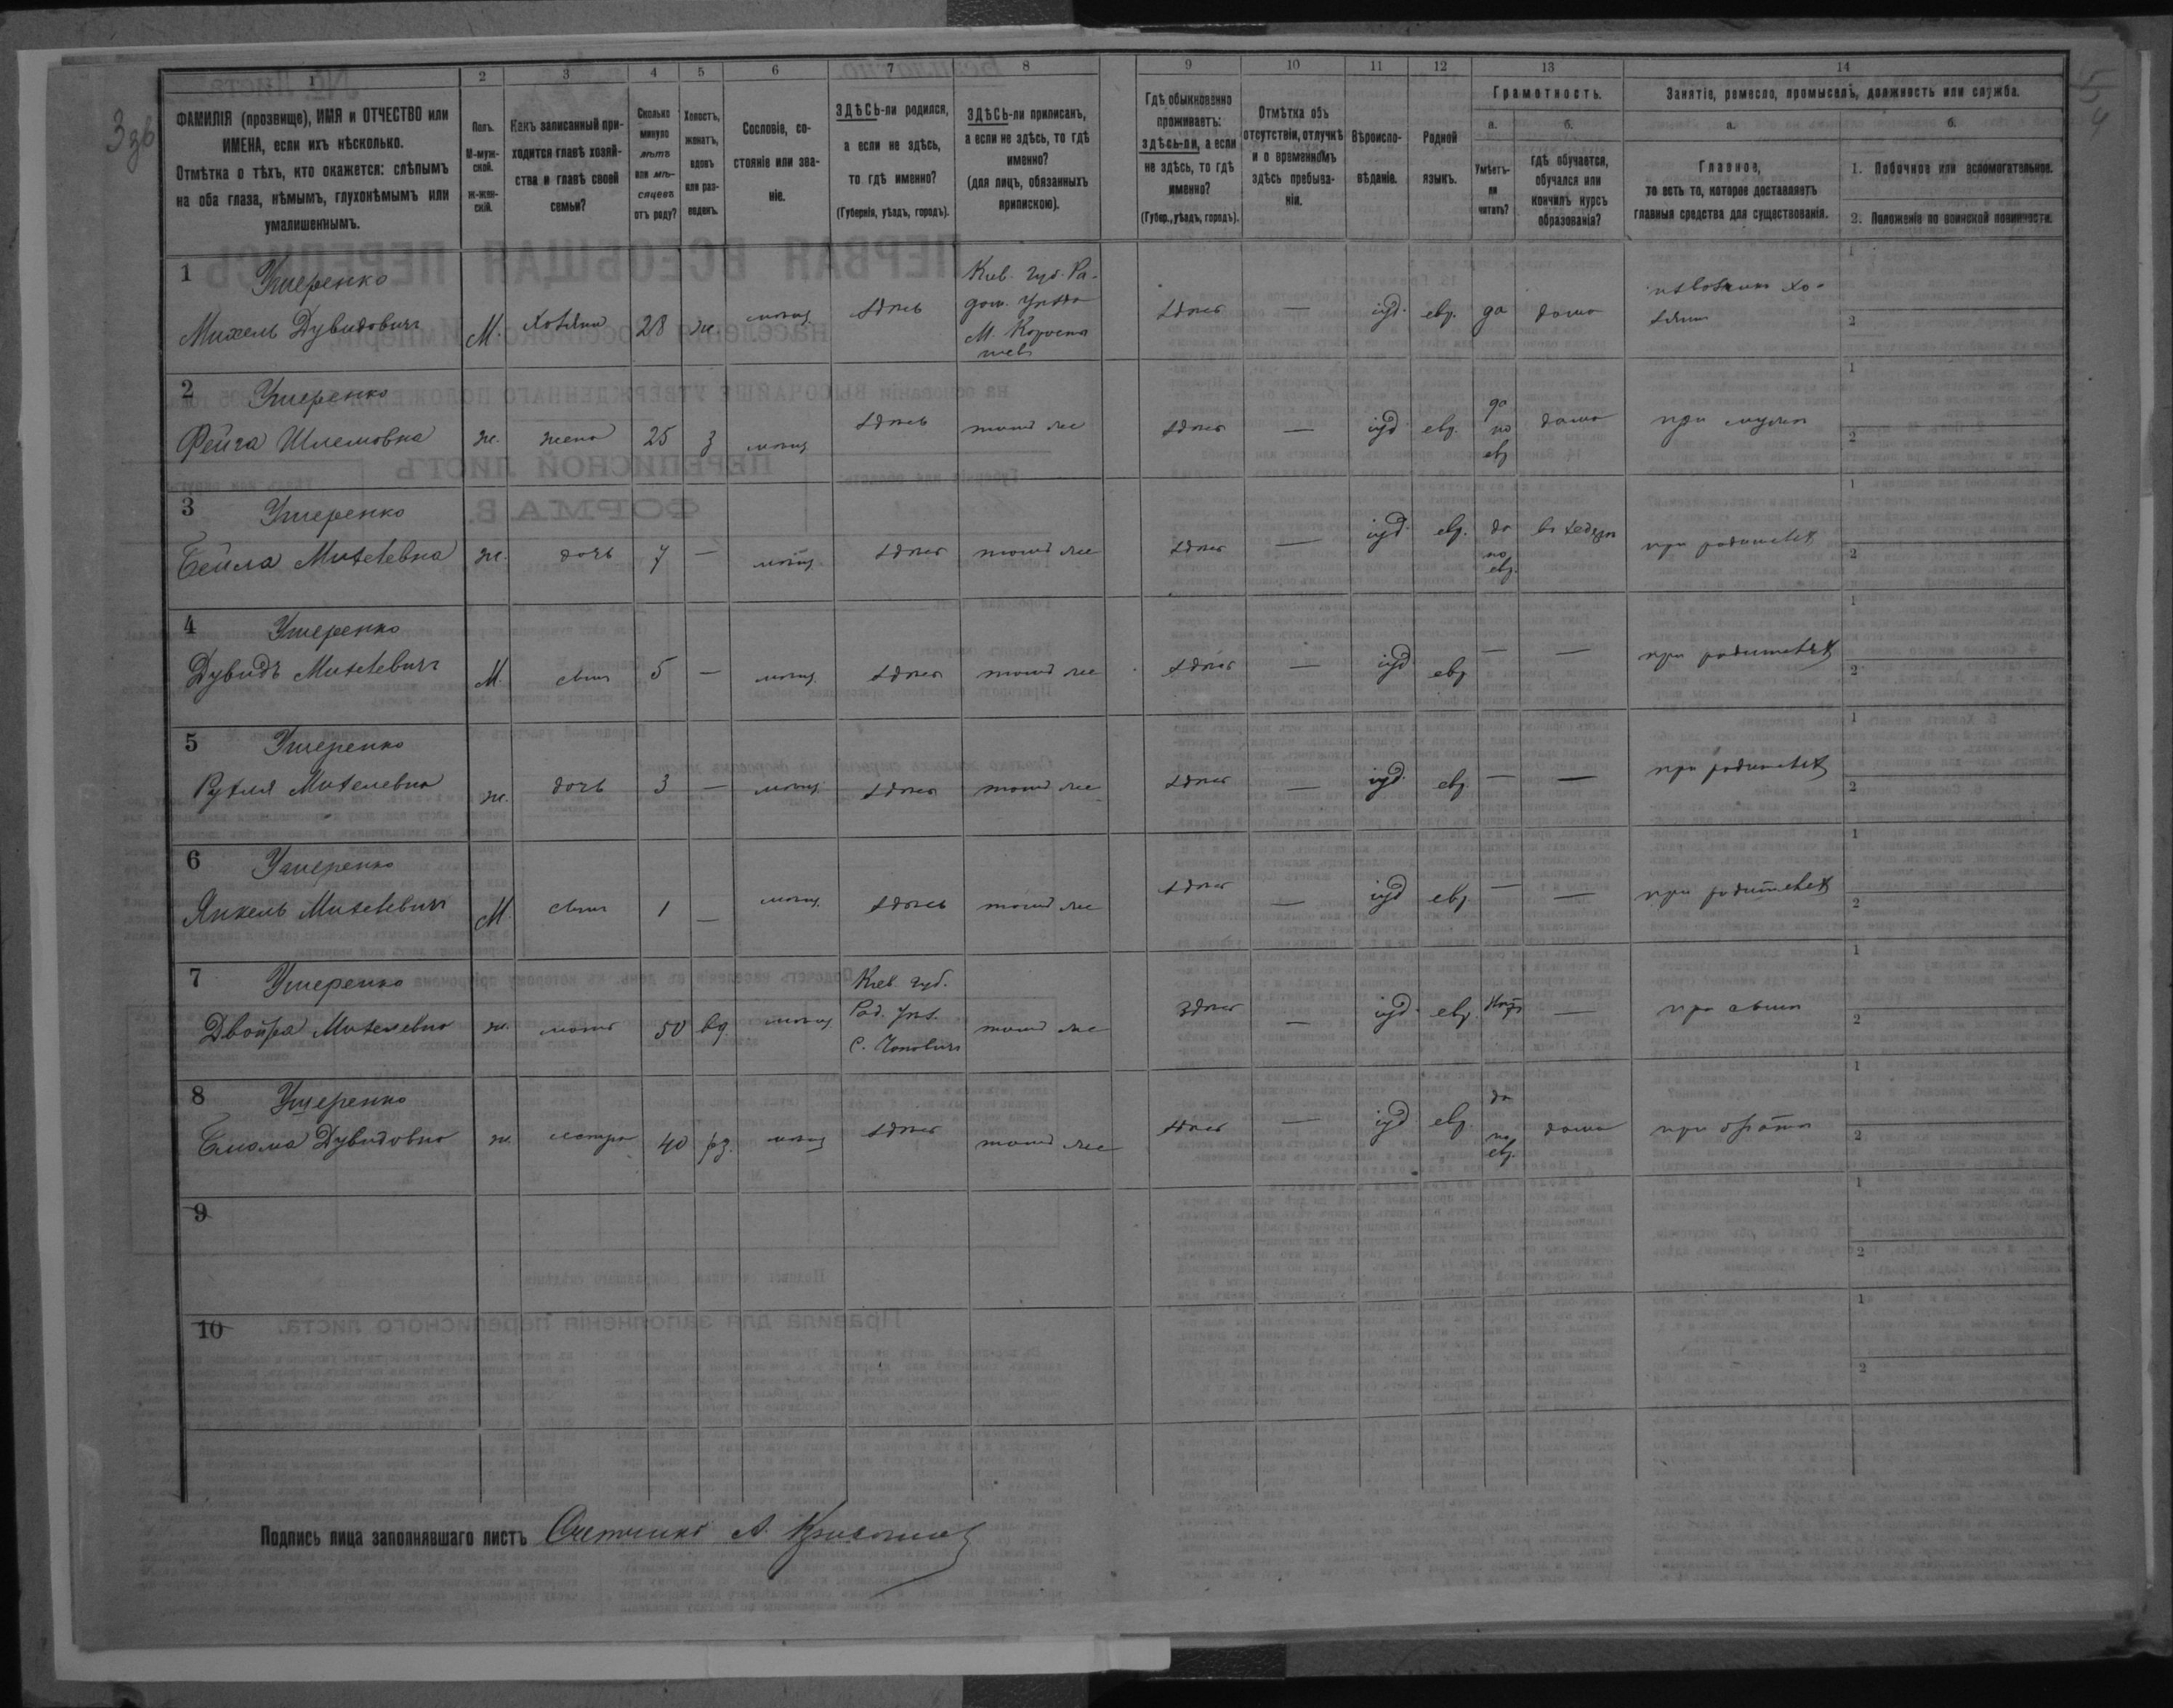 1 2 3 4 5 6 7 8 9 10 11 12 13 14
ФАМИЛІЯ (прозвище), ИМЯ и ОТЧЕСТВО или
ИМЕНА, если ихъ нѣсколько.
Отмѣтка о тѣхъ, кто окажется: слѣпымъ
на оба глаза, нѣмымъ, глухонѣмымъ или
умалишеннымъ.
Полъ.
М-муж-
ской.
ж-жен-
скій.
Какъ записанный при-
ходится главѣ хозяй-
ства и главѣ своей
семьи?
Сколько
минуло
лѣтъ
или мѣ-
сяцевъ
отъ роду?
Холостъ,
женатъ,
вдовъ
или раз-
веденъ.
Сословіе, со-
стояніе или зва-
ніе.
ЗДѢСЬ-ли родился,
а если не здѣсь,
то гдѣ именно?
(Губернія, уѣздъ, городъ).
ЗДѢСЬ-ли приписанъ,
а если не здѣсь, то гдѣ
именно?
(для лицъ, обязанныхъ
припискою).
Гдѣ обыкновенно
проживаетъ:
здѣсь-ли, а если
не здѣсь, то гдѣ
именно?
(Губер., уѣздъ, городъ).
Отмѣтка объ
отсутствіи, отлучкѣ
и о временномъ
здѣсь пребыва-
ніи.
Вѣроиспо-
вѣданіе.
Родной
языкъ.
Грамотность.
а.
Умѣетъ-
ли
читать?
б.
гдѣ обучается,
обучался или
кончилъ курсъ
образованія?
Занятіе, ремесло, промыселъ, должность или служба.
а.
Главное,
то есть то, которое доставляетъ
главныя средства для существованія.
б.
1. Побочное или вспомогательное.
2. Положеніе по воинской повинности.
1 Ушеренко
Михель Дувидовичъ М. хозяинъ 28 ж мѣщ здѣсь
Кіев. губ. Ра-
дом. уѣзда
М. Коросты
шевъ
здѣсь — іуд. евр. да дома
извозчикъ хо-
зяинъ
2 Ушеренко
Фейга Шлемовна ж. жена 25 з мѣщ здѣсь тамъ же здѣсь — іуд евр.
да
по
евр
дома при мужѣ
3 Ушеренко
Бейла Михелевна ж. дочь 7 — мѣщ здѣсь тамъ же здѣсь — іуд. евр.
да
по
евр.
въ хедерѣ при родителях
4 Ушеренко
Дувидъ Михелевичъ М. сынъ 5 — мѣщ здѣсь тамъ же здѣсь — іуд евр — — при родителях
5 Ушеренко
Рухля Михелевна ж. дочь 3 — мѣщ здѣсь тамъ же здѣсь — іуд. евр — — при родителях
6 Ушеренко
Янкель Михелевичъ М. сынъ 1 — мѣщ. здѣсь тамъ же здѣсь — іуд евр — — при родителях
7 Ушеренко
Двойра Михелевна ж. мать 50 вд мѣщ
Кіев. губ.
Рад. уѣз.
С. Чоповичи
тамъ же здѣсь — іуд. евр. нѣтъ — при сынѣ
8 Ушеренко
Дувидовна ж. сестра 40 рз. мѣщ здѣсь тамъ же здѣсь — іуд евр.
да
по
евр.
дома при братѣ
9
10
Подпись лица заполнявшаго листъ Счетчикъ А.